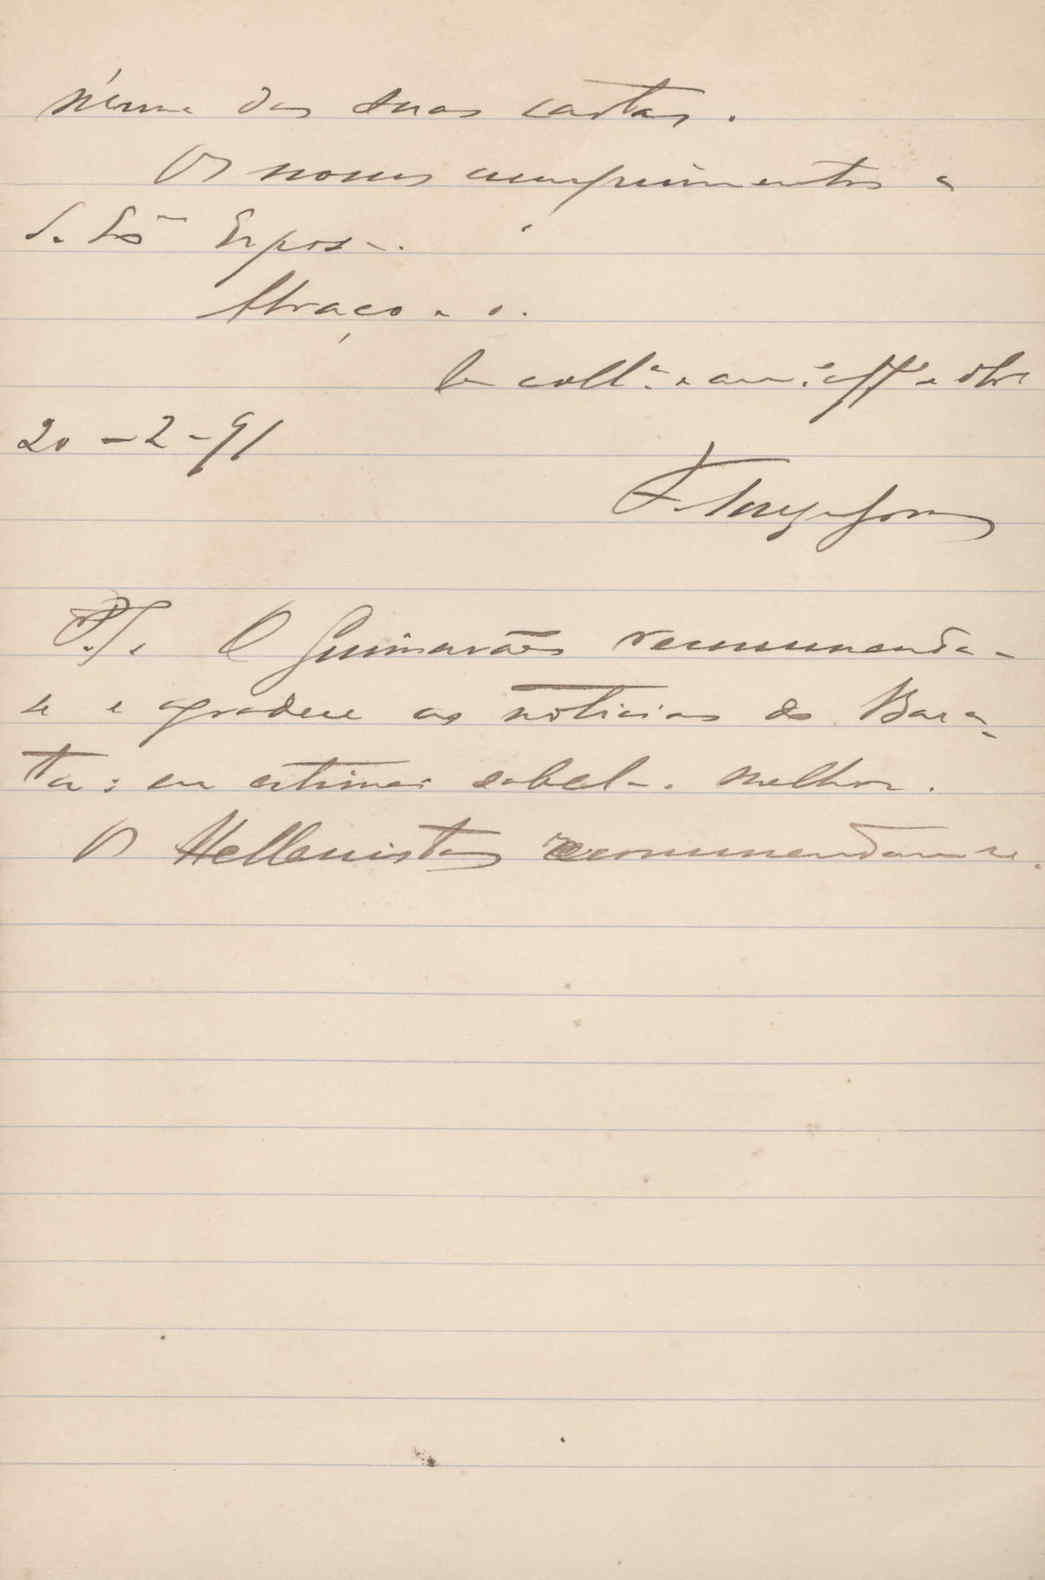 das suas cartas.
Os nossos cumprimentos a
S. Exª Esposa.
Abraço-o.
coll.ª e am.º aff.º e obr.
20-2-91
P.S. O Guimarães recommenda-
se e agradece as noticias do Bara-
ta: eu estimei sabel-o melhor.
Os Hellenistas recommendam-se.